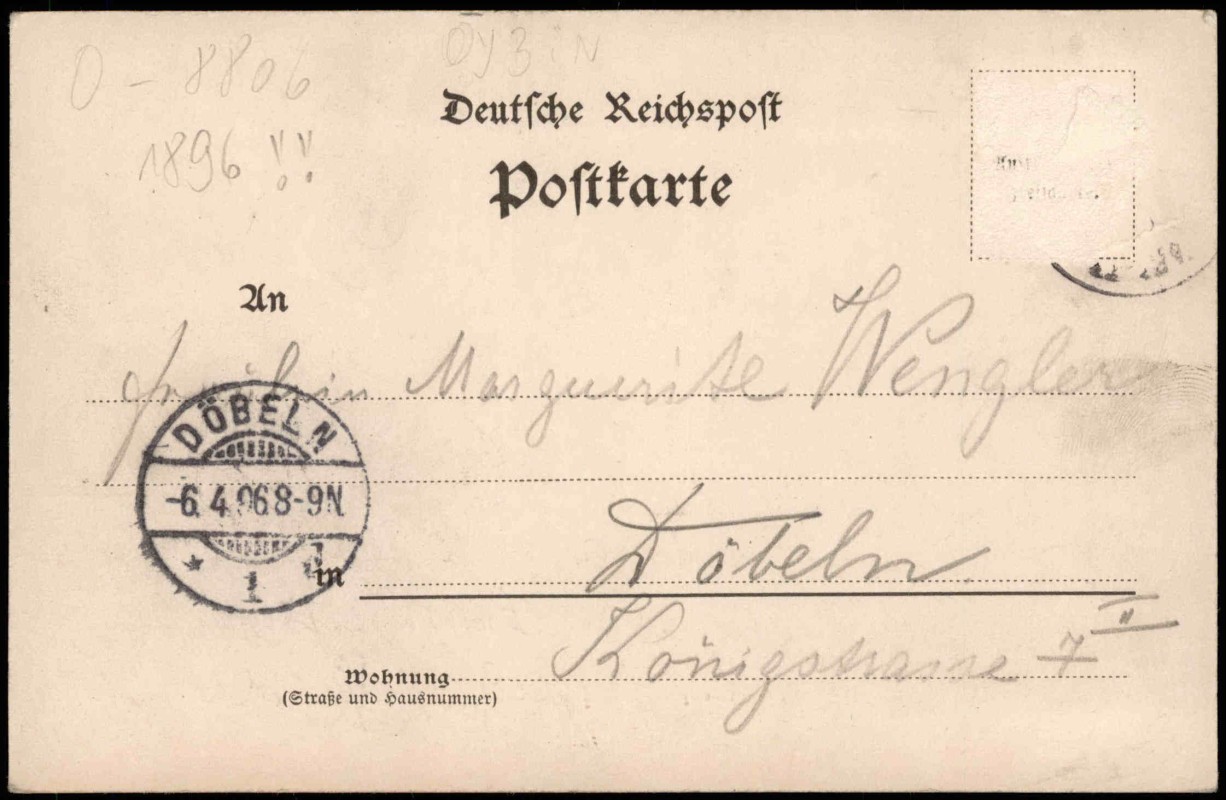 O - 8806
Oyzin
1896 !!
Deutsche Reichspost
Postkarte
An
Fräulein Marguerite Wengler
DÖBELN
-6.4.96 8-9N.
* 1 *
in
Döbeln
Königstrasse 7 II
Wohnung
(Straße und Hausnummer)